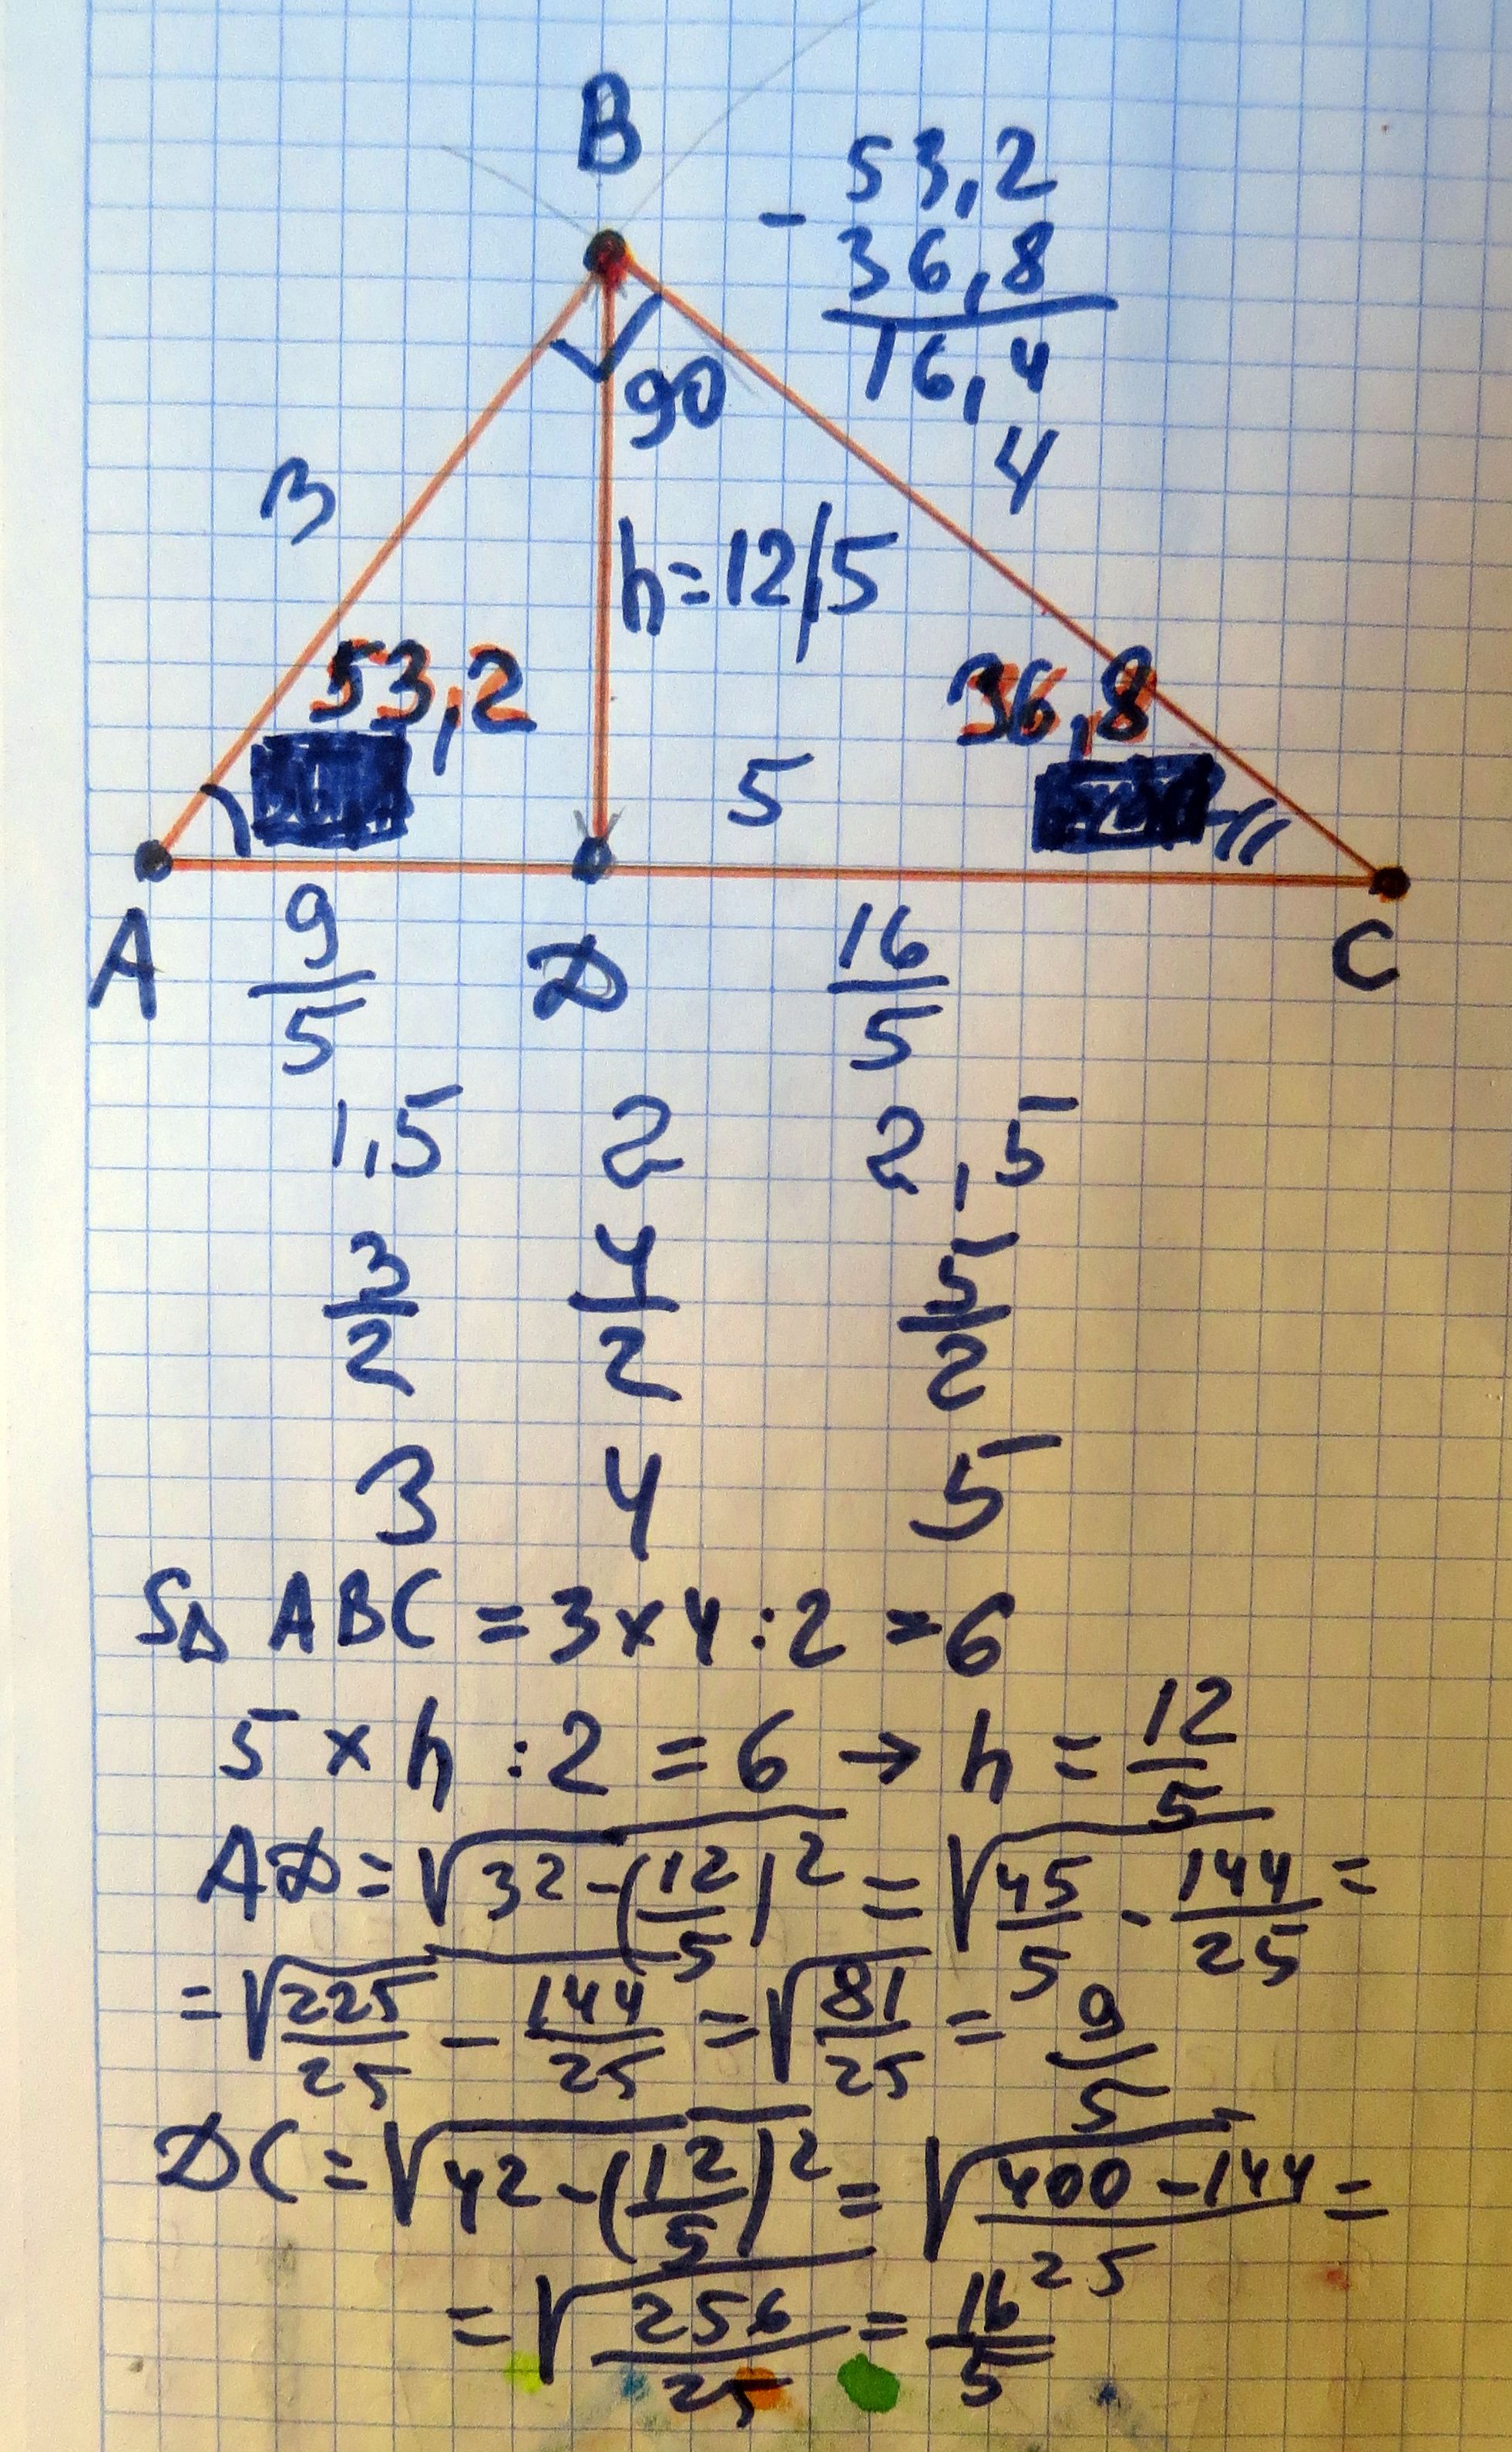 B
53,2
- 36,8
16,4
90
3
4
h=12/5
53,2
36,8
5
A
D
C
9/5
16/5
1,5 2 2,5
3/2 4/2 5/2
3 4 5
SΔ ABC = 3×4:2 = 6
5 × h : 2 = 6 → h = 12/5
AD = √32-(12/5)2 = √45/5 - 144/25 =
= √225/25 - 144/25 = √81/25 = 9/5
DC = √42-(12/5)2 = √400-144/25 =
= √256/25 = 16/5